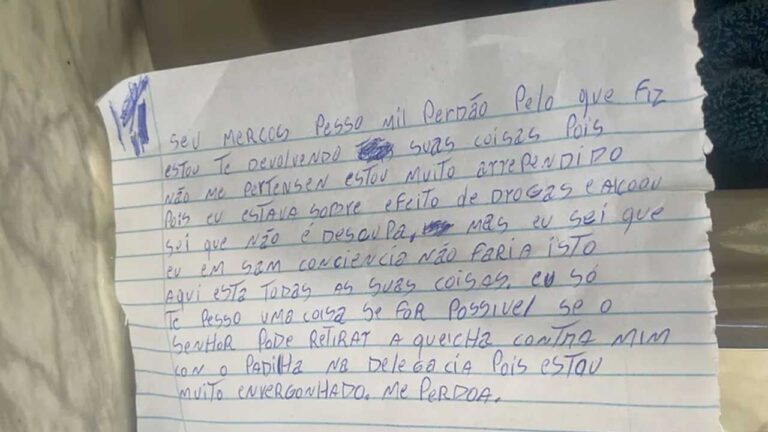 SEU MERCOS PESSO MIL PERDÃO PELO que FIZ
ESTOU TE DEVOLVENDO SUAS COISAS POIS
NÃO ME PERTENSEN ESTOU MUITO ARREPENDIDO
POIS EU ESTAVA SOBRE EFEITO DE DROGAS E ALCOOU
SEI QUE NÃO É DESCUPA, MAS EU SEI QUE
EU EM SAM CONCIENCIA NÃO FARIA ISTO
AQUI ESTA TODAS AS SUAS COISAS. EU SÓ
TE PESSO UMA COISA SE FOR POSSIVEL SE O
SENHOR PODE RETIRAT A QUEICHA CONTRA MIM
CON O PADILHA NA DELEGACIA POIS ESTOU
MUITO ENVERGONHADO. ME PERDOA.